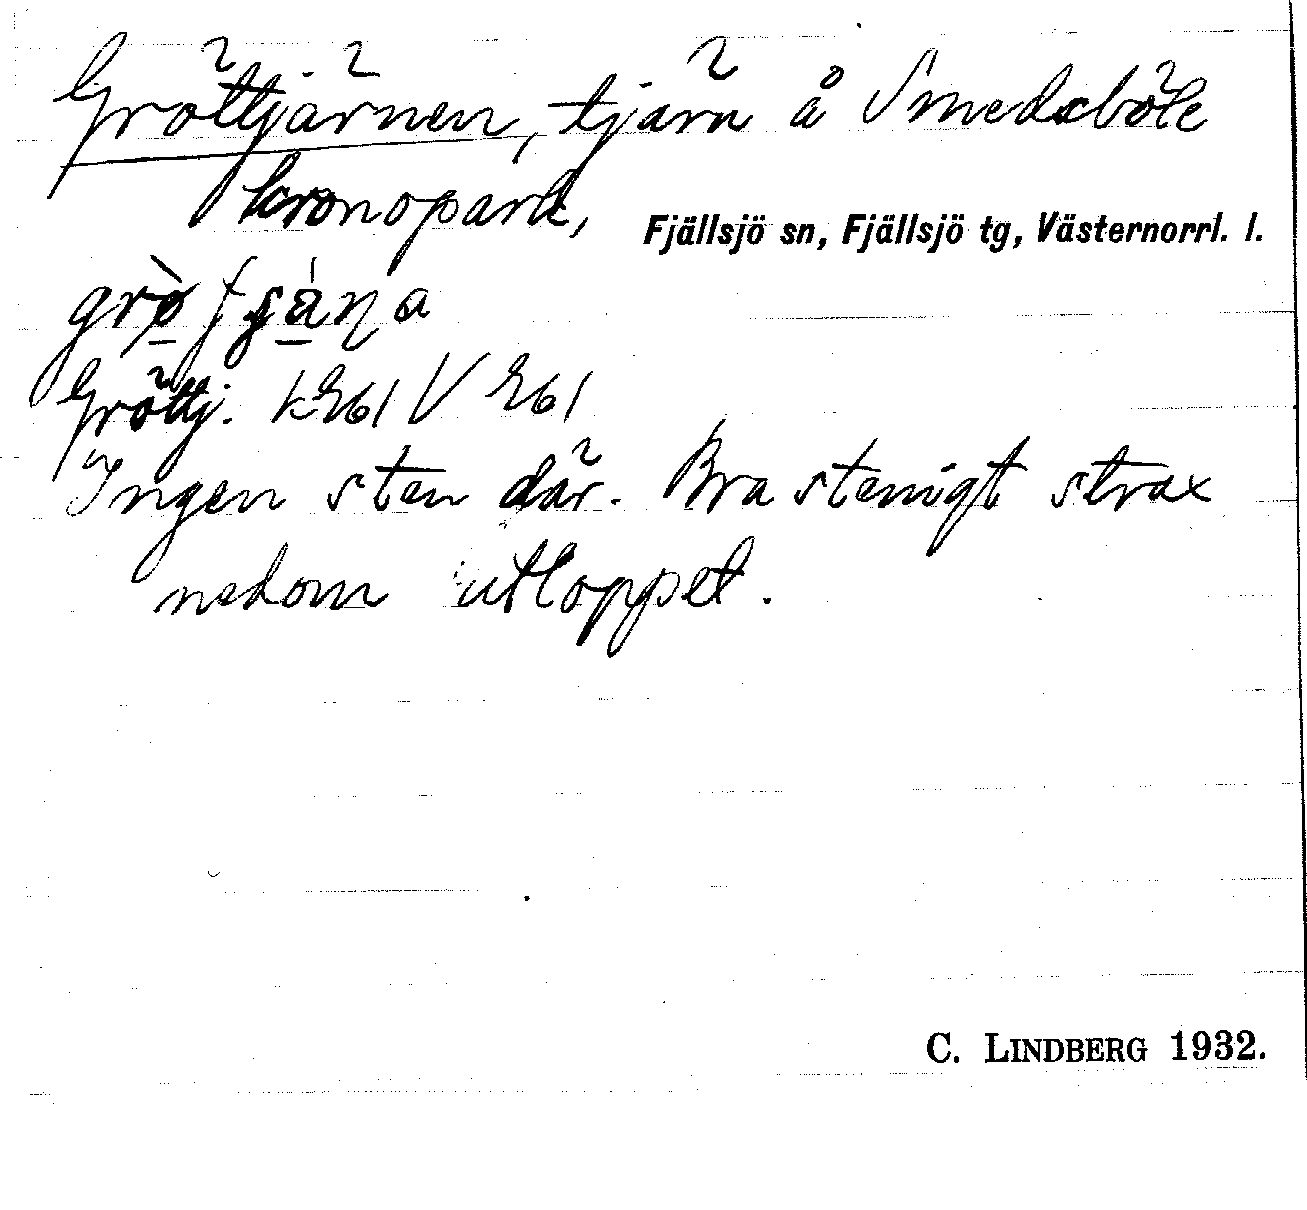 Gröttjärnen, tjärn å Smedsböle
kronopark, Fjällsjö sn, Fjällsjö tg, Västernorrl. l.
Gröttj. kr61 V r61
Ingen sten där. Bra stenigt strax
nedom utloppet.
C. LINDBERG 1932.